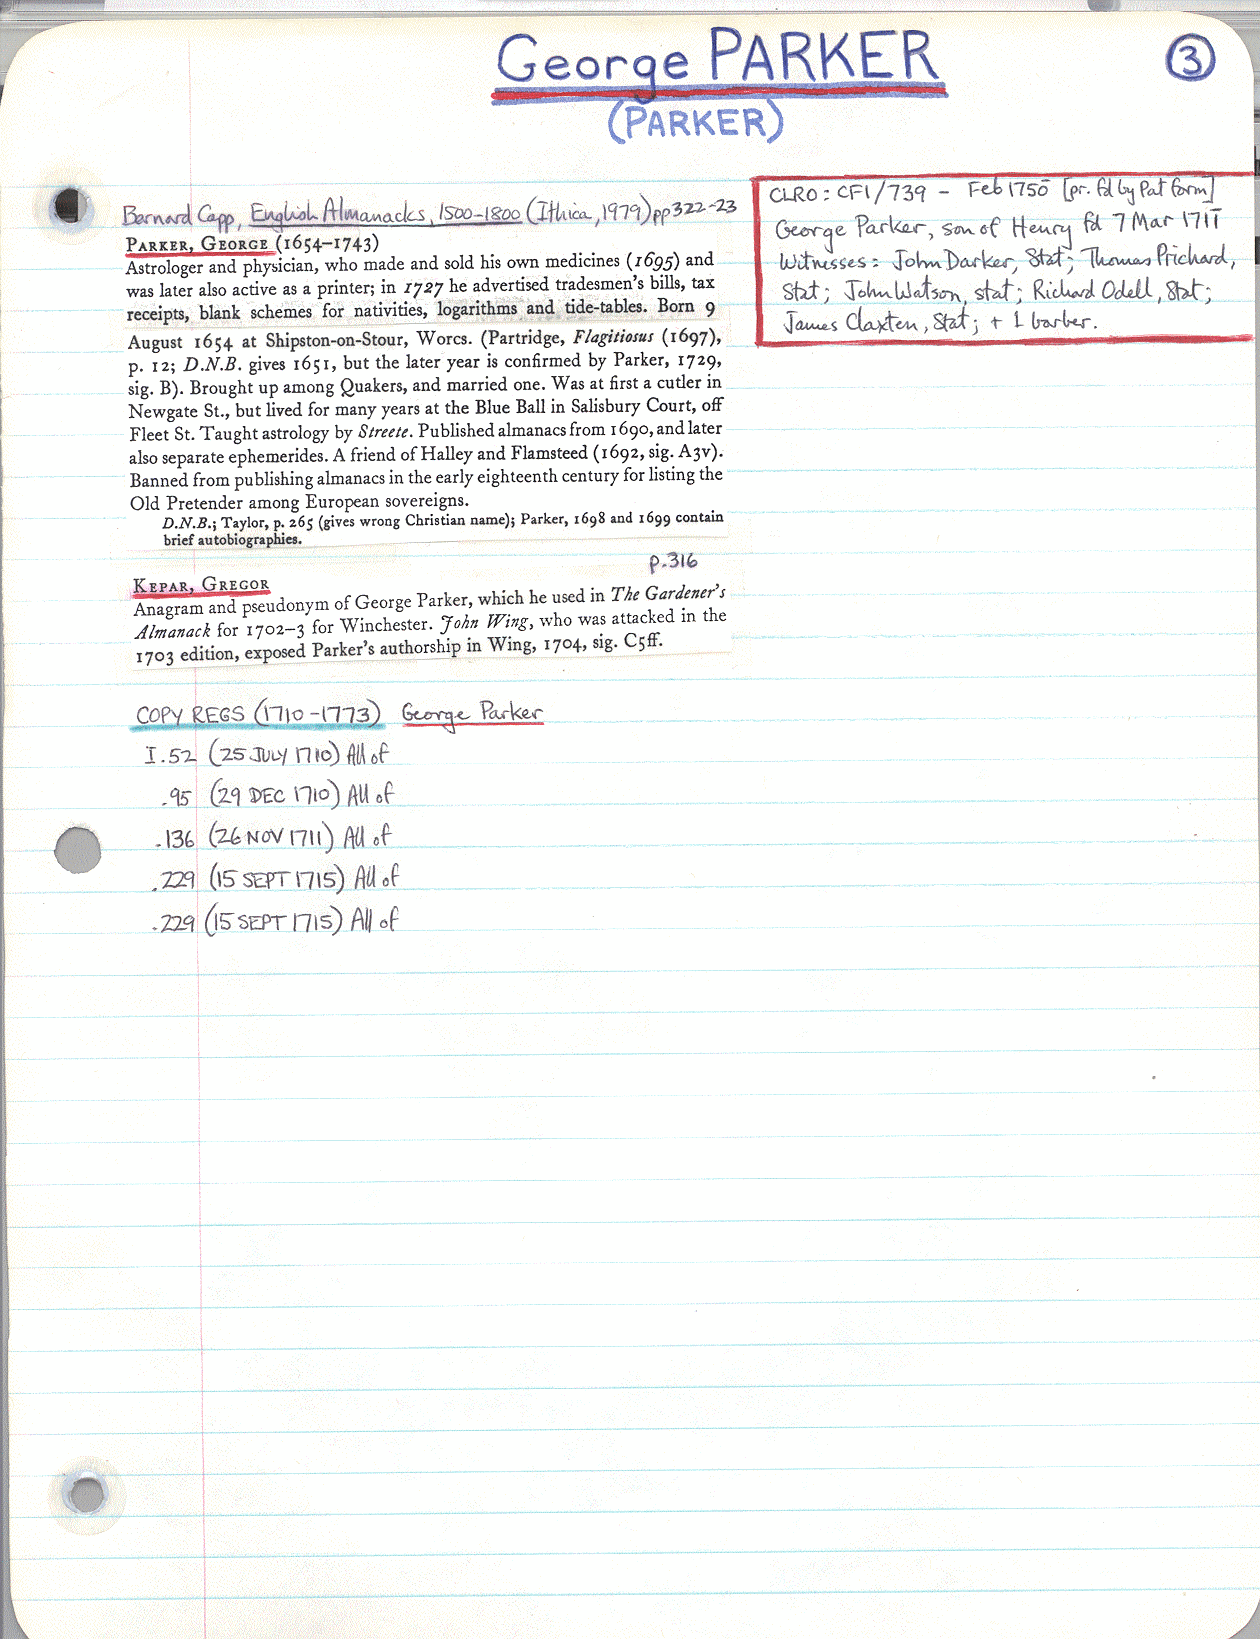 George PARKER
3
(PARKER)
Bernard Capp, English Almanacks, 1500-1800 (Ithica, 1979) pp322-23
PARKER, GEORGE (1654–1743)
Astrologer and physician, who made and sold his own medicines (1695) and
was later also active as a printer; in 1727 he advertised tradesmen's bills, tax
receipts, blank schemes for nativities, logarithms and tide-tables. Born 9
August 1654 at Shipston-on-Stour, Worcs. (Partridge, Flagitiosus (1697),
p. 12; D.N.B. gives 1651, but the later year is confirmed by Parker, 1729,
sig. B). Brought up among Quakers, and married one. Was at first a cutler in
Newgate St., but lived for many years at the Blue Ball in Salisbury Court, off
Fleet St. Taught astrology by Streete. Published almanacs from 1690, and later
also separate ephemerides. A friend of Halley and Flamsteed (1692, sig. A3v).
Banned from publishing almanacs in the early eighteenth century for listing the
Old Pretender among European sovereigns.
D.N.B.; Taylor, p. 265 (gives wrong Christian name); Parker, 1698 and 1699 contain
brief autobiographies.
p.316
KEPAR, GREGOR
Anagram and pseudonym of George Parker, which he used in The Gardener's
Almanack for 1702–3 for Winchester. John Wing, who was attacked in the
1703 edition, exposed Parker's authorship in Wing, 1704, sig. C5ff.
COPY REGS (1710-1773) George Parker
I.52 (25 JULY 1710) All of
.95 (29 DEC 1710) All of
.136 (26 NOV 1711) All of
.229 (15 SEPT 1715) All of
.229 (15 SEPT 1715) All of
CLRO: CF1/739 - Feb 1750 [pr. fd by Pat form]
George Parker, son of Henry fd 7 Mar 1711
Witnesses: John Darker, Stat; Thomas Prichard,
Stat; John Watson, stat; Richard Odell, Stat;
James Claxten, Stat; + 1 barber.